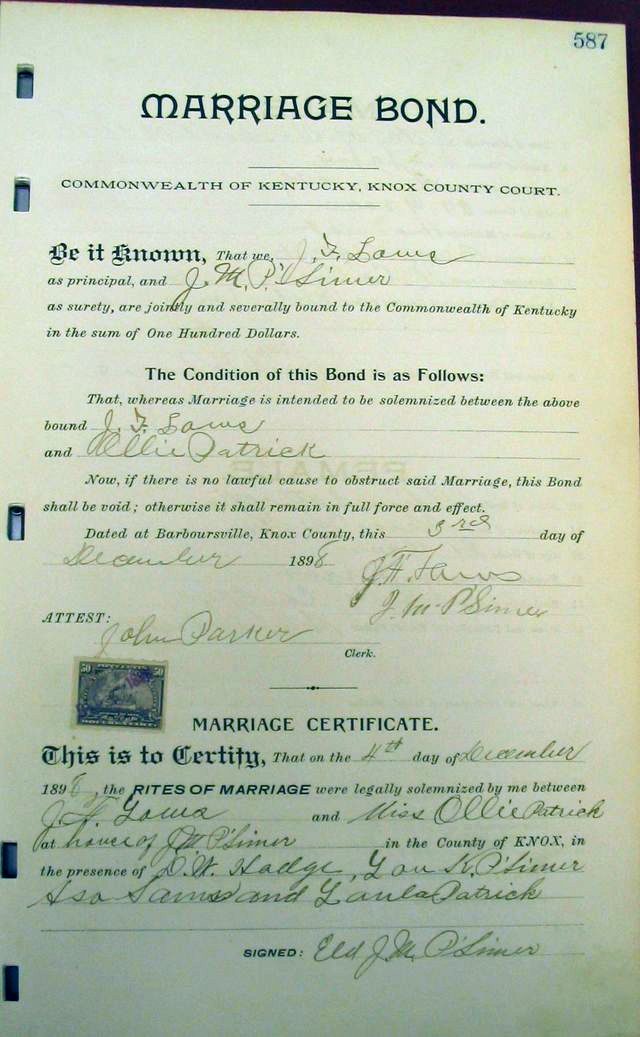 587
MARRIAGE BOND.
COMMONWEALTH OF KENTUCKY, KNOX COUNTY COURT.
Be it Known, That we, J. F. Laws
as principal, and J. M. P'Simer
as surety, are jointly and severally bound to the Commonwealth of Kentucky
in the sum of One Hundred Dollars.
The Condition of this Bond is as Follows:
That, whereas Marriage is intended to be solemnized between the above
bound J. F. Laws
and Ollie Patrick
Now, if there is no lawful cause to obstruct said Marriage, this Bond
shall be void; otherwise it shall remain in full force and effect.
Dated at Barboursville, Knox County, this 3rd day of
December 1898 J. F. Laws
J. M. P'Simer
ATTEST:
John Parker
Clerk.
50 50
MARRIAGE CERTIFICATE.
This is to Certify, That on the 4th day of December
1898, the RITES OF MARRIAGE were legally solemnized by me between
J. F. Laws and Miss Ollie Patrick
at house of J M P'Simer in the County of KNOX, in
the presence of D. W. Hodge, Lou K. P'Simer
and Laula Patrick
SIGNED: Eld J. M. P'Simer